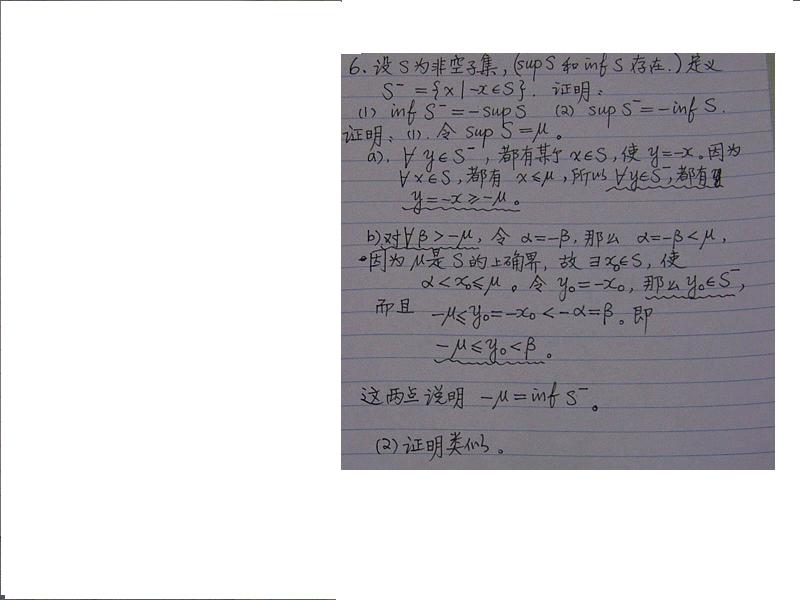 6、设S为非空子集,(sup S 和 inf S 存在.) 定义
S⁻ = {x | -x∈S}. 证明:
(1) inf S⁻ = -sup S (2) sup S⁻ = -inf S.
证明: (1). 令 sup S = μ。
a). ∀ y∈S⁻, 都有某个 x∈S, 使 y=-x。因为
∀ x∈S, 都有 x≤μ, 所以 ∀y∈S⁻, 都有
y=-x≥-μ。
b) 对∀β>-μ, 令 α=-β, 那么 α=-β<μ,
因为μ是S的上确界, 故 ∃x₀∈S, 使
α<x₀≤μ。令 y₀=-x₀, 那么y₀∈S⁻,
而且 -μ≤y₀=-x₀<-α=β。即
-μ≤y₀<β。
这两点说明 -μ=inf S⁻。
(2) 证明类似。